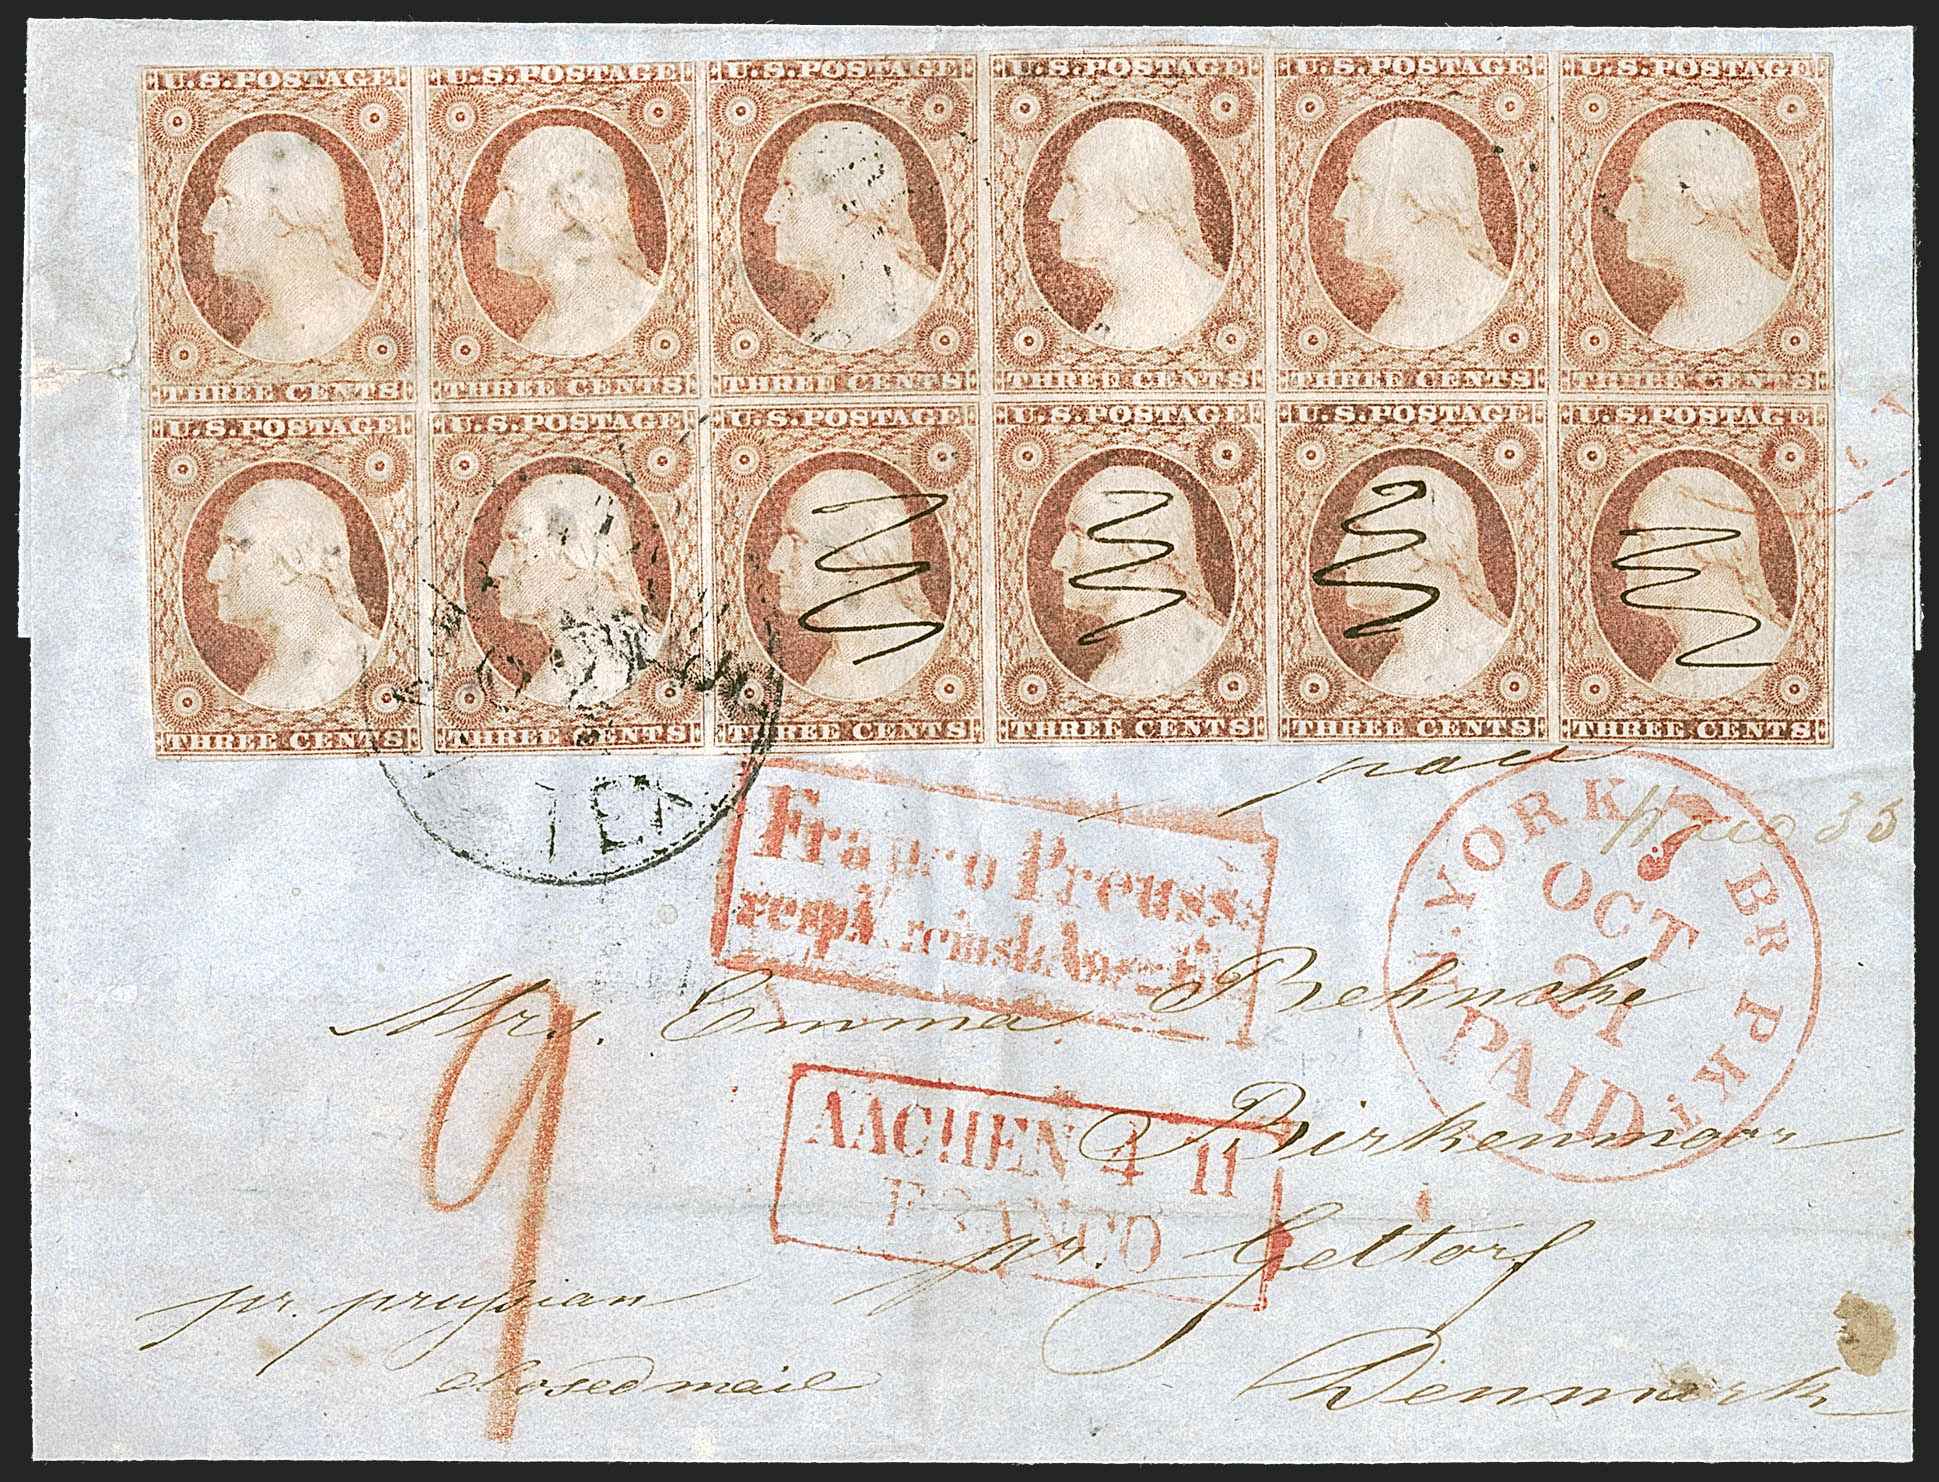 U.S.POSTAGE U.S.POSTAGE U.S.POSTAGE U.S.POSTAGE U.S.POSTAGE U.S.POSTAGE
THREE CENTS THREE CENTS THREE CENTS THREE CENTS THREE CENTS THREE CENTS
U.S.POSTAGE U.S.POSTAGE U.S.POSTAGE U.S.POSTAGE U.S.POSTAGE U.S.POSTAGE
THREE CENTS THREE CENTS THREE CENTS THREE CENTS THREE CENTS THREE CENTS
TEN
paid
Franco Preuss.
N. YORK 7 BR PKT
OCT
21
PAID
Mrs. Emma Behncke
9
AACHEN 4 11
FRANCO
Birkenmoor
pr. Gettorf
pr. prussian
closed mail
Denmark